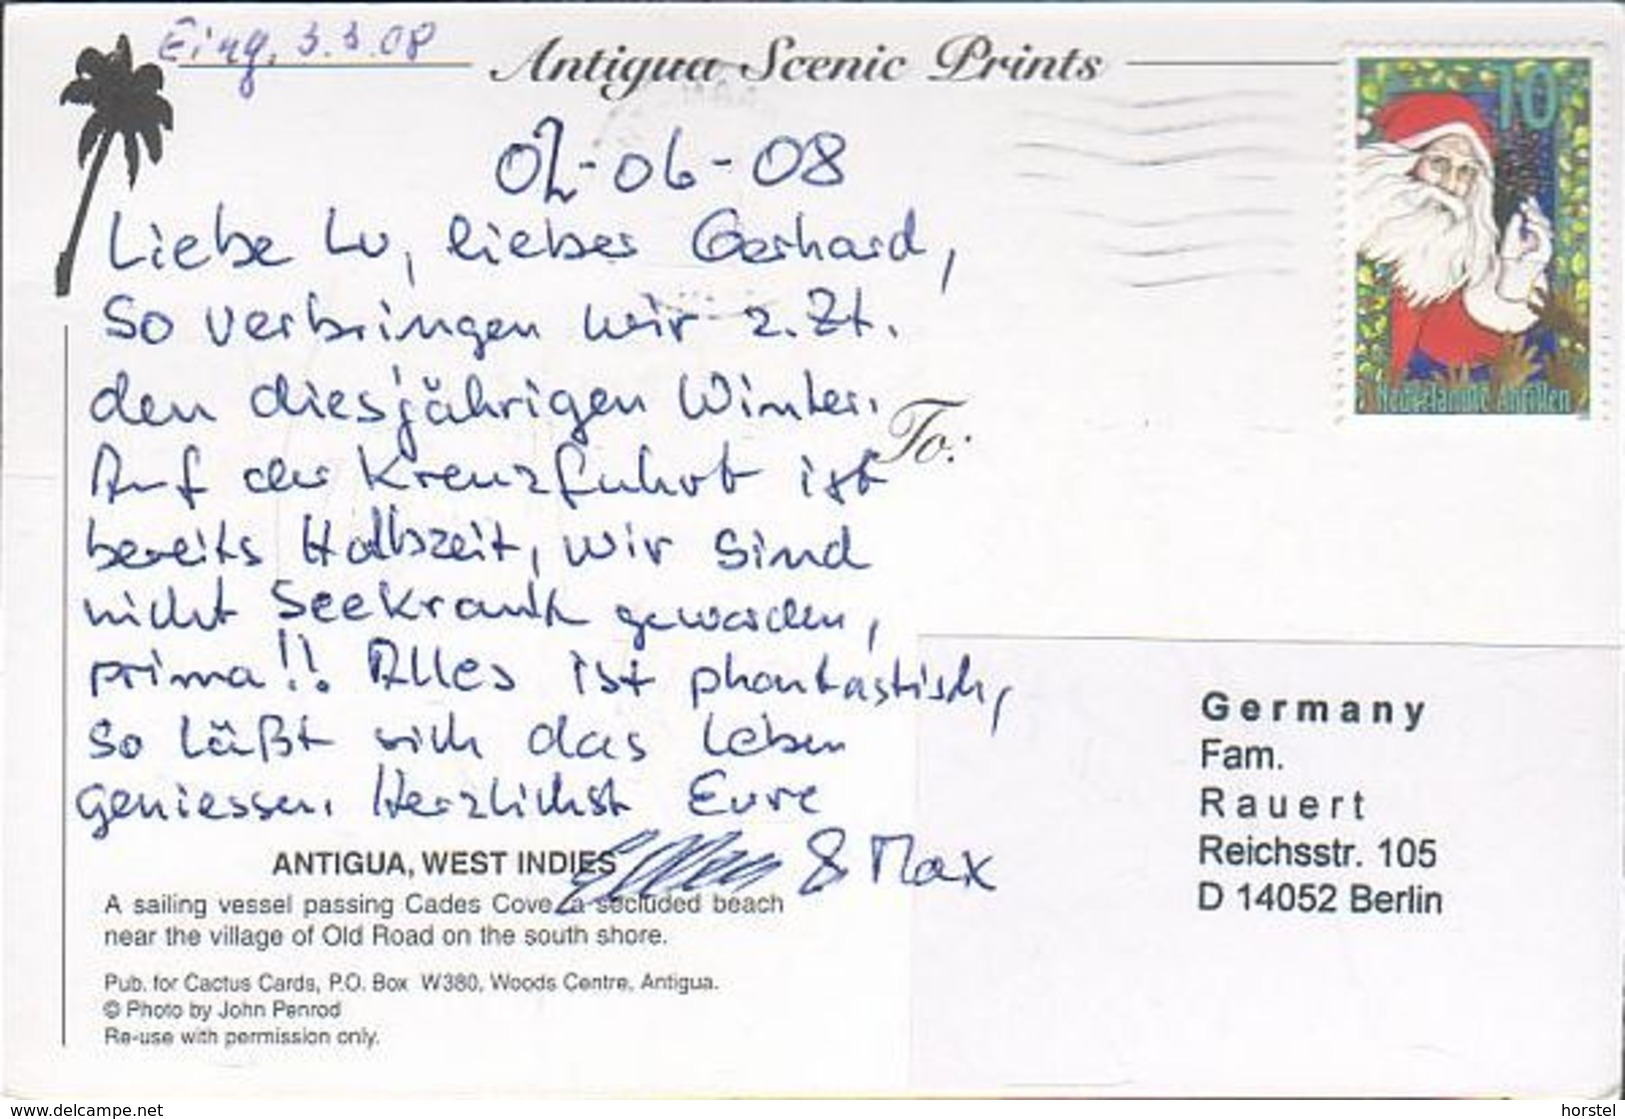 Eing, 3.3.08
Antigua Scenic Prints
10
02-06-08
Liebe Lu, lieber Gerhard,
So verbringen wir z.Zt.
den diesjährigen Winter.
Auf der Kreuzfahrt ist
bereits Halbzeit, wir sind
nicht Seekrank geworden,
prima!! Alles ist phantastisch,
so läßt sich das Leben
geniessen. Herzlichst Eure
Ellen & Max
Nederlandse Antillen
To:
Germany
Fam.
Rauert
Reichsstr. 105
D 14052 Berlin
ANTIGUA, WEST INDIES
A sailing vessel passing Cades Cove, a secluded beach
near the village of Old Road on the south shore.
Pub. for Cactus Cards, P.O. Box W380, Woods Centre, Antigua.
© Photo by John Penrod
Re-use with permission only.
www.delcampe.net
horstel